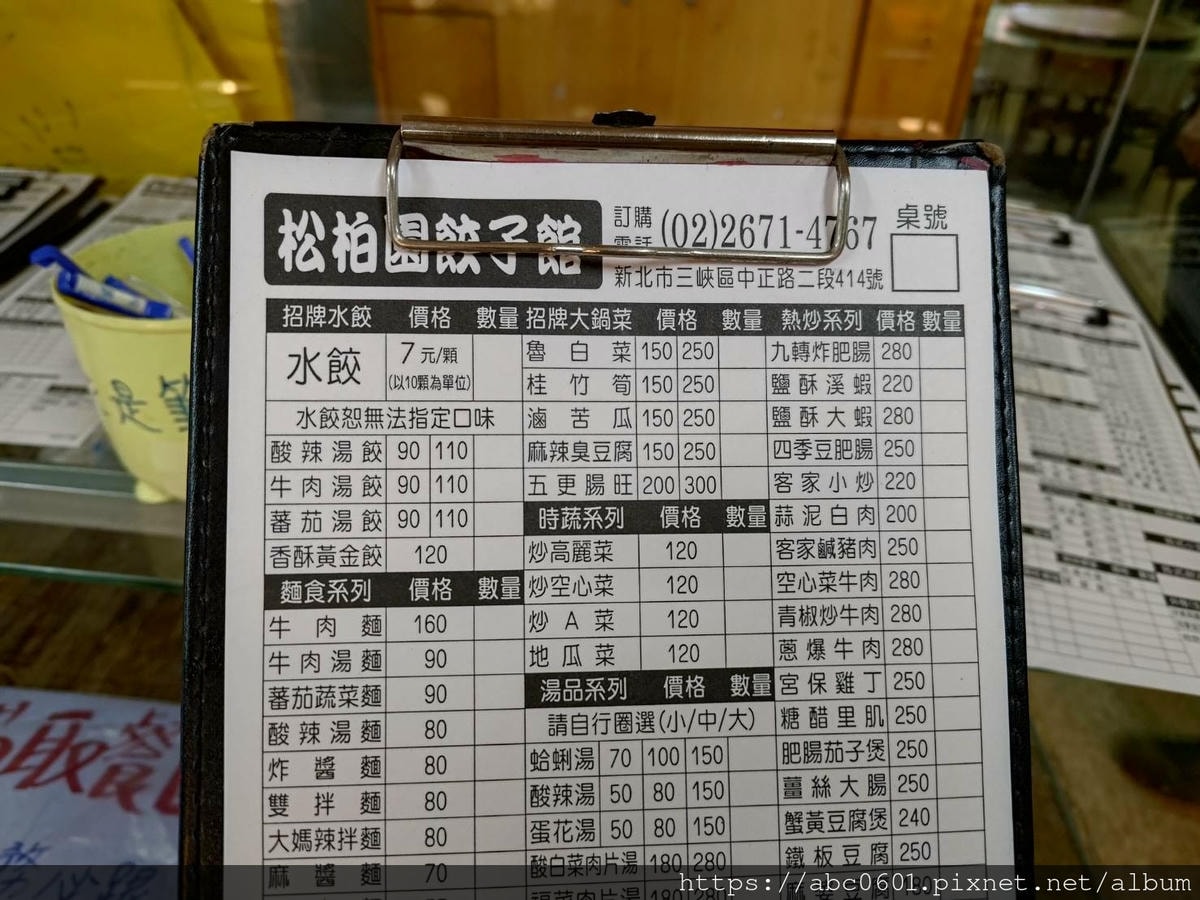 松柏園餃子館
訂購
電話 (02)2671-4767
新北市三峽區中正路二段414號
桌號
招牌水餃 價格 數量
水餃 7元/顆
(以10顆為單位)
水餃恕無法指定口味
酸辣湯餃 90 110
牛肉湯餃 90 110
蕃茄湯餃 90 110
香酥黃金餃 120
麵食系列 價格 數量
牛肉麵 160
牛肉湯麵 90
蕃茄蔬菜麵 90
酸辣湯麵 80
炸醬麵 80
雙拌麵 80
大媽辣拌麵 80
麻醬麵 70
招牌大鍋菜 價格 數量
魯白菜 150 250
桂竹筍 150 250
滷苦瓜 150 250
麻辣臭豆腐 150 250
五更腸旺 200 300
時蔬系列 價格 數量
炒高麗菜 120
炒空心菜 120
炒A菜 120
地瓜菜 120
湯品系列 價格 數量
請自行圈選(小/中/大)
蛤蜊湯 70 100 150
酸辣湯 50 80 150
蛋花湯 50 80 150
酸白菜肉片湯 180 280
熱炒系列 價格 數量
九轉炸肥腸 280
鹽酥溪蝦 220
鹽酥大蝦 280
四季豆肥腸 250
客家小炒 220
蒜泥白肉 200
客家鹹豬肉 250
空心菜牛肉 280
青椒炒牛肉 280
蔥爆牛肉 280
宮保雞丁 250
糖醋里肌 250
肥腸茄子煲 250
薑絲大腸 250
蟹黃豆腐煲 240
鐵板豆腐 250
是筆
取餐
https://abc0601.pixnet.net/album